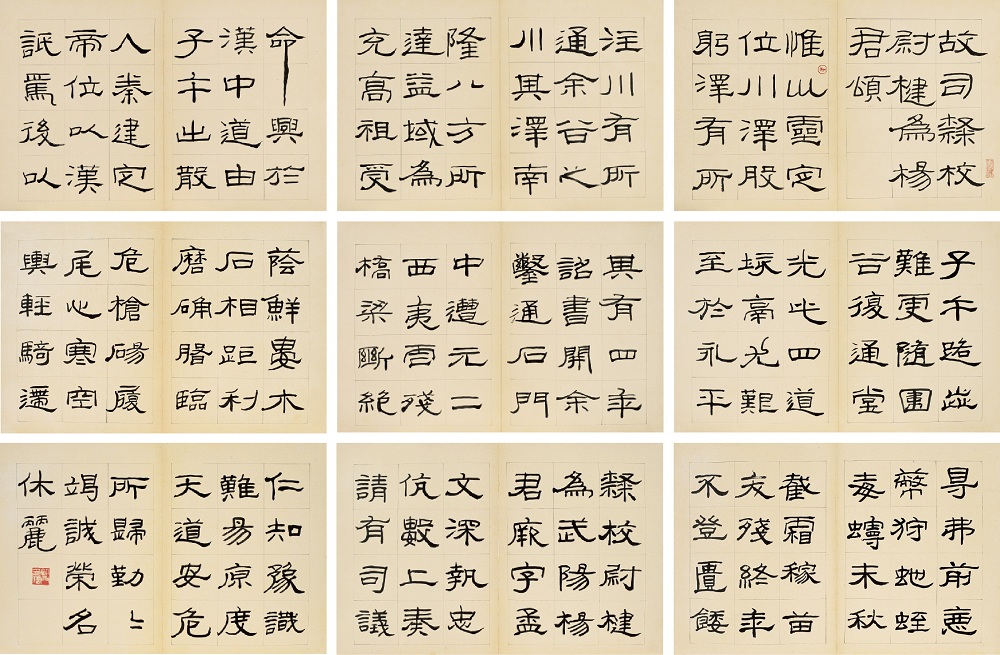 故司隸校
尉楗為楊
君頌
惟巛靈定
位川澤股
躬澤有所
注川有所
通余谷之
川其澤南
隆八方所
達益域為
充高祖受
命興於
漢中道由
子午出散
入秦建定
帝位以漢
詆焉後以
子午路歰
難更隨圍
谷復通堂
光此四道
垓鬲尤艱
至於永平
其有四年
詔書開余
鑿通石門
中遭元二
西夷虐殘
橋梁斷絕
蔭鮮晏木
石相距利
磨确臨
危槍碭履
尾心寒空
輿輕騎遰
㝵弗前惡
弊狩虵蛭
毒蟃未秋
截霜稼苗
夭殘終年
不登匱餧
隸校尉楗
為武陽楊
君厥字孟
文深執忠
伉數上奏
請有司議
仁知豫識
難易原度
天道安危
所歸勤〻
竭誠榮名
休麗